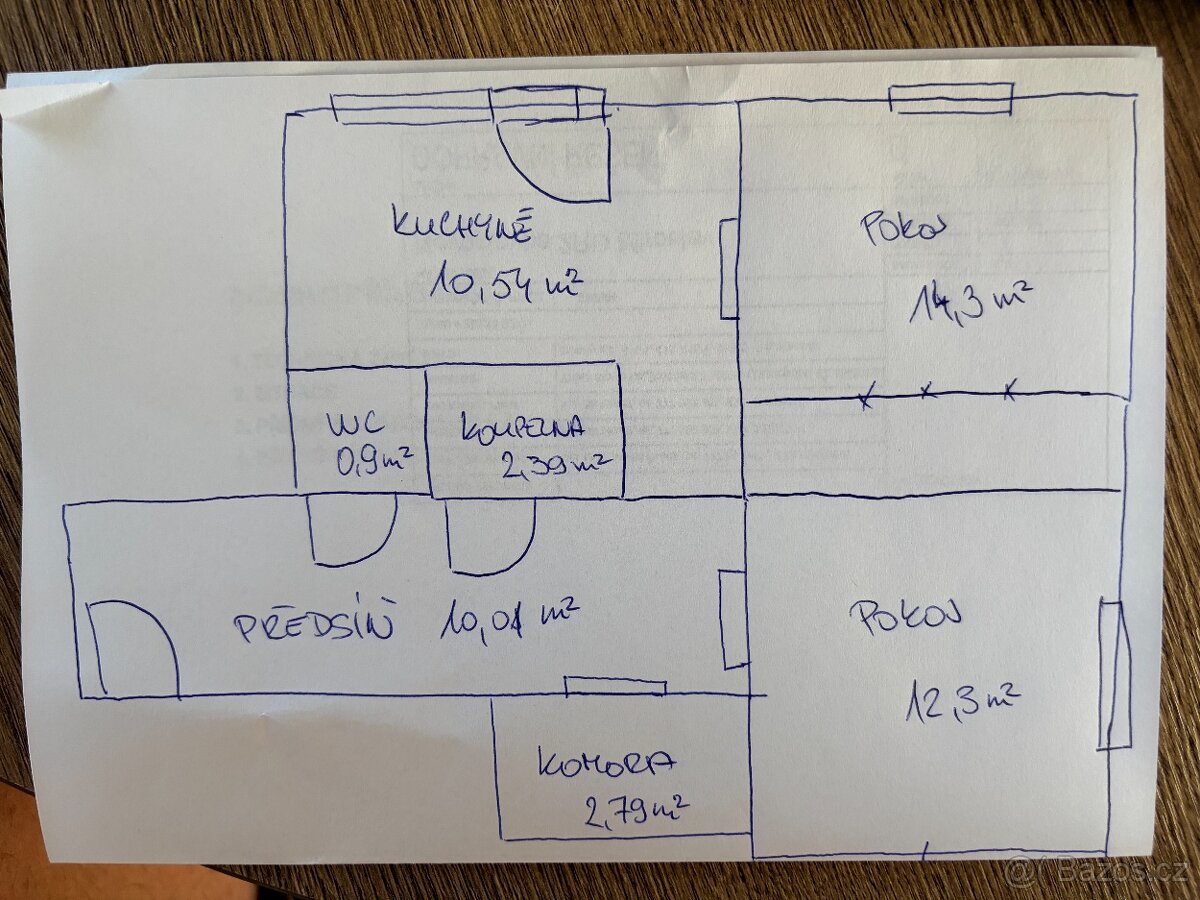 KUCHYNĚ
10,54 m²
POKOJ
14,3 m²
WC
0,9 m²
KOUPELNA
2,39 m²
PŘEDSÍŇ 10,01 m²
POKOJ
12,3 m²
KOMORA
2,79 m²
@ Bazos.cz